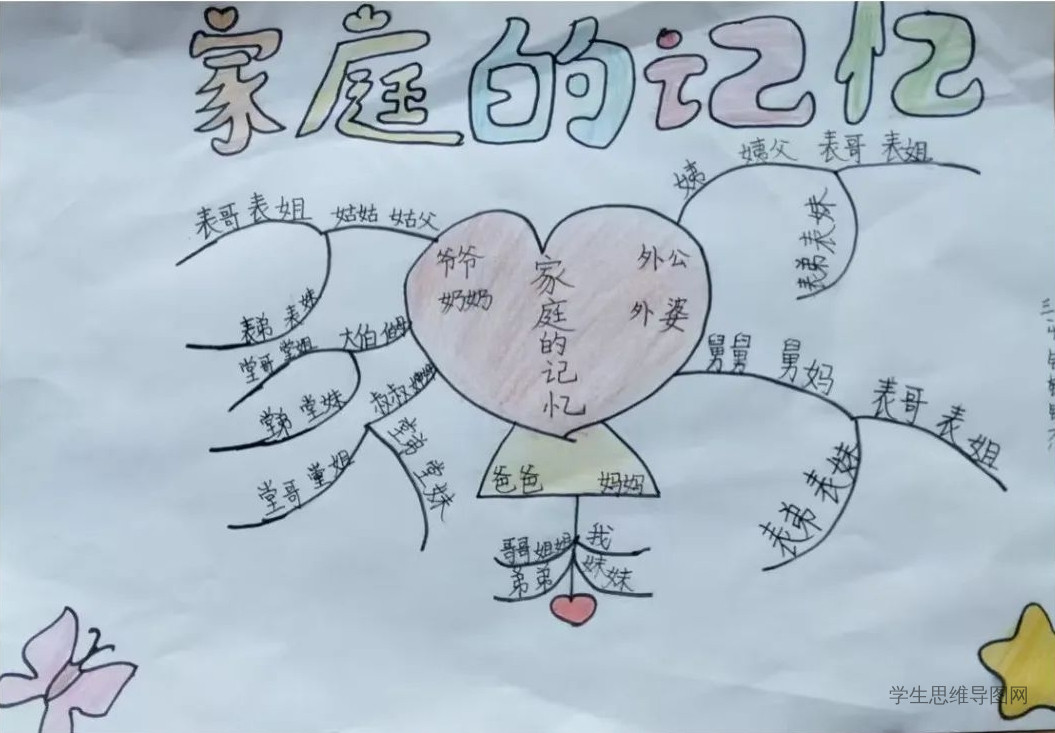 家庭的记忆
姨 姨父 表哥 表姐
表弟 表妹
表哥 表姐 姑姑 姑父
表弟 表妹
爷爷
奶奶
家庭的记忆
外公
外婆
堂哥 堂姐 大伯 伯母
堂弟 堂妹
叔叔
堂哥 堂姐
堂弟 堂妹
舅舅 舅妈
表哥 表姐
表弟 表妹
爸爸 妈妈
哥哥 姐姐 我
弟弟 妹妹
学生思维导图网